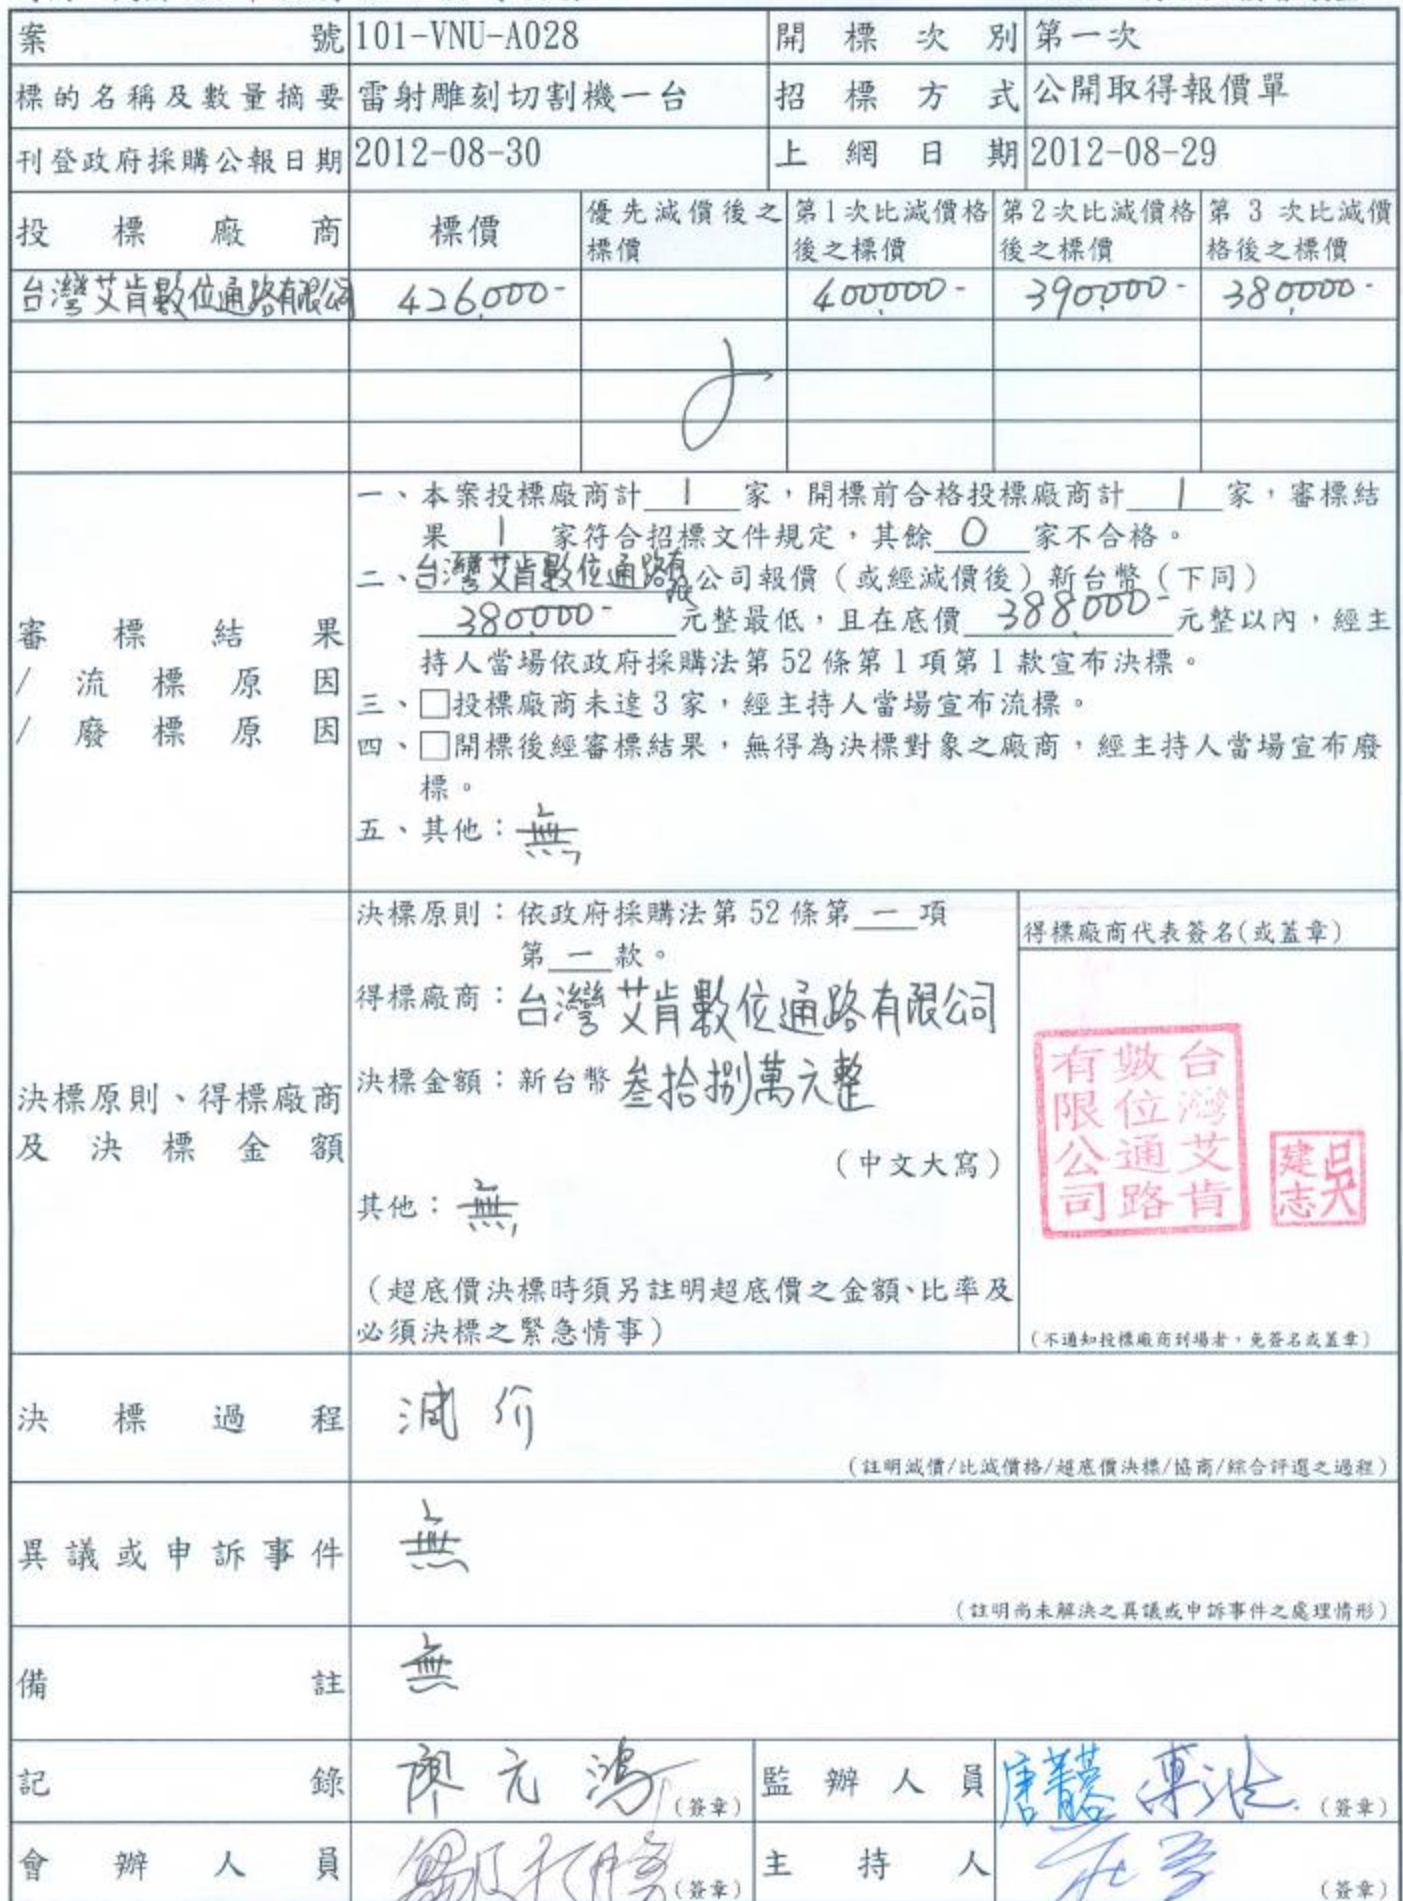 案號 101-VNU-A028 開標次別 第一次
標的名稱及數量摘要 雷射雕刻切割機一台 招標方式 公開取得報價單
刊登政府採購公報日期 2012-08-30 上網日期 2012-08-29
投標廠商 標價 優先減價後之標價 第1次比減價格後之標價 第2次比減價格後之標價 第3次比減價格後之標價
台灣艾肯數位通路有限公司 426,000- 400,000- 390,000- 380,000-
審標結果
/流標原因
/廢標原因
一、本案投標廠商計 1 家，開標前合格投標廠商計 1 家，審標結
果 1 家符合招標文件規定，其餘 0 家不合格。
二、台灣艾肯數位通路有限公司報價（或經減價後）新台幣（下同）
380,000- 元整最低，且在底價 388,000- 元整以內，經主
持人當場依政府採購法第52條第1項第1款宣布決標。
三、□投標廠商未達3家，經主持人當場宣布流標。
四、□開標後經審標結果，無得為決標對象之廠商，經主持人當場宣布廢
標。
五、其他：無
決標原則、得標廠商
及決標金額
決標原則：依政府採購法第52條第一項
第一款。
得標廠商：台灣艾肯數位通路有限公司
決標金額：新台幣 叁拾捌萬元整
（中文大寫）
其他：無
（超底價決標時須另註明超底價之金額、比率及
必須決標之緊急情事）
得標廠商代表簽名(或蓋章)
台灣艾肯
數位通路
有限公司
吳建志
（不通知投標廠商到場者，免簽名或蓋章）
決標過程 減价
（註明減價/比減價格/超底價決標/協商/綜合評選之過程）
異議或申訴事件 無
（註明尚未解決之異議或申訴事件之處理情形）
備註 無
記錄 廖元鴻 (簽章) 監辦人員 (簽章)
會辦人員 (簽章) 主持人 (簽章)